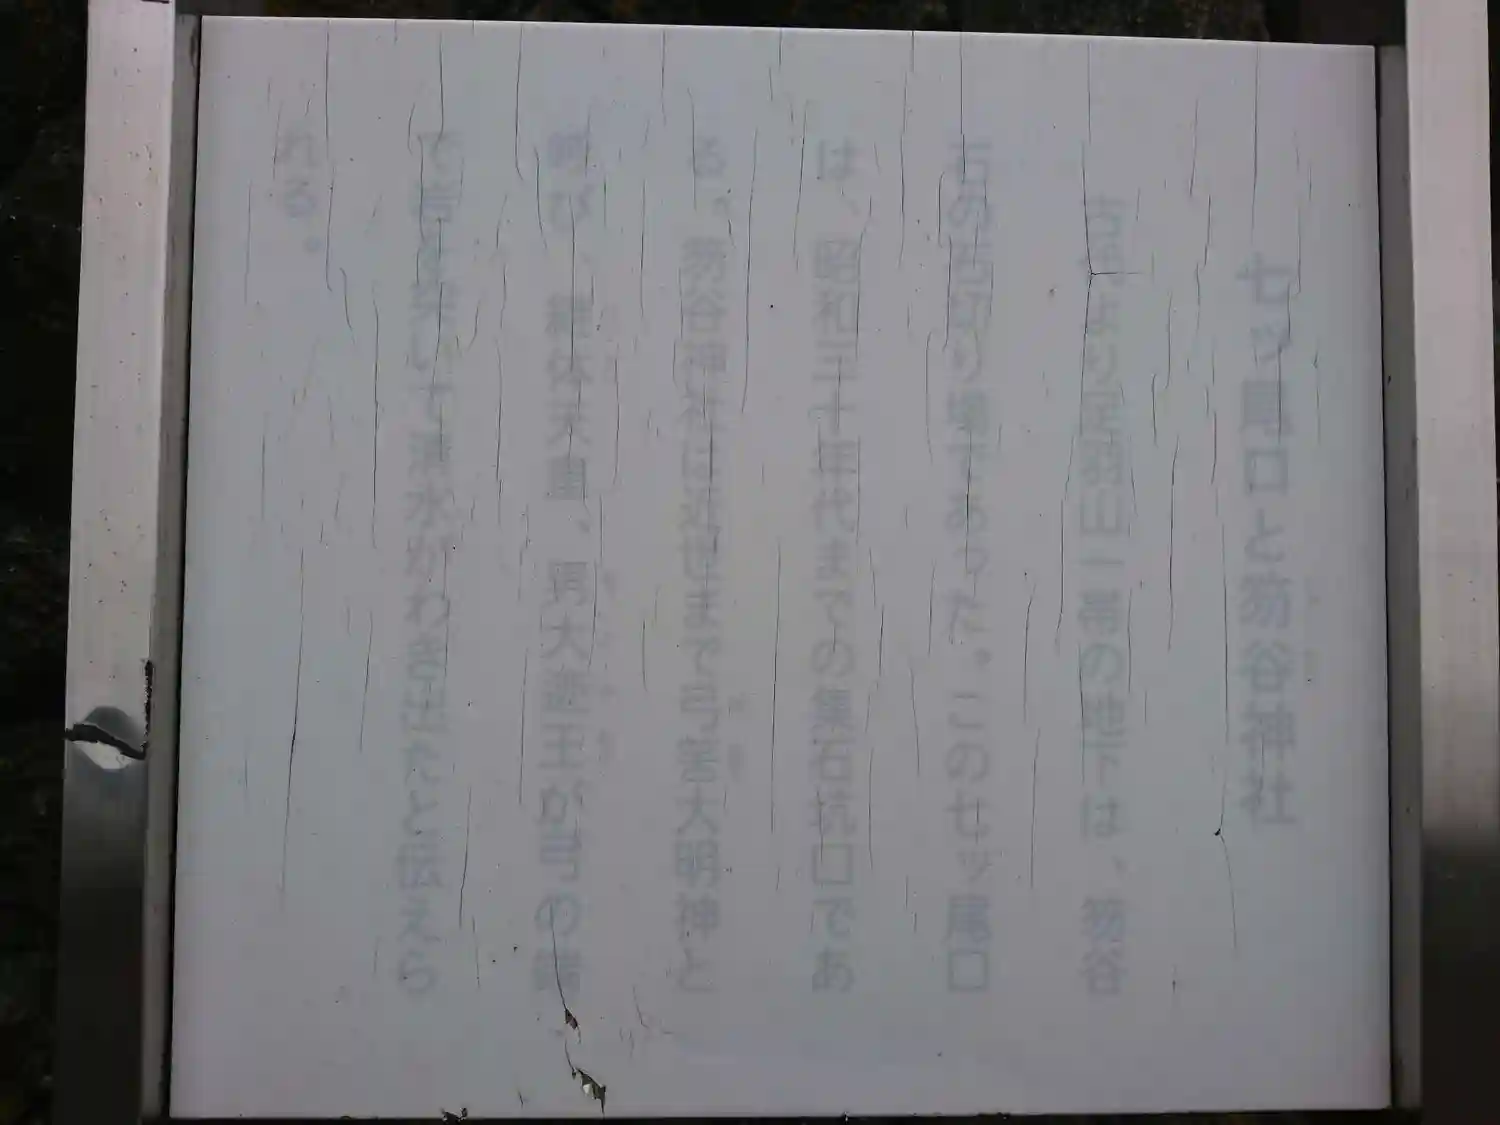 七ッ尾口と笏谷神社
古代より足羽山一帯の地下は、笏谷
石の石切り場であった。この七ッ尾口
は、昭和三十年代までの集石坑口であ
る。笏谷神社は近世まで弓筈大明神と
呼び、継体天皇、男大迹王が弓の
で岩を いて清水がわき出たと伝えら
れる。